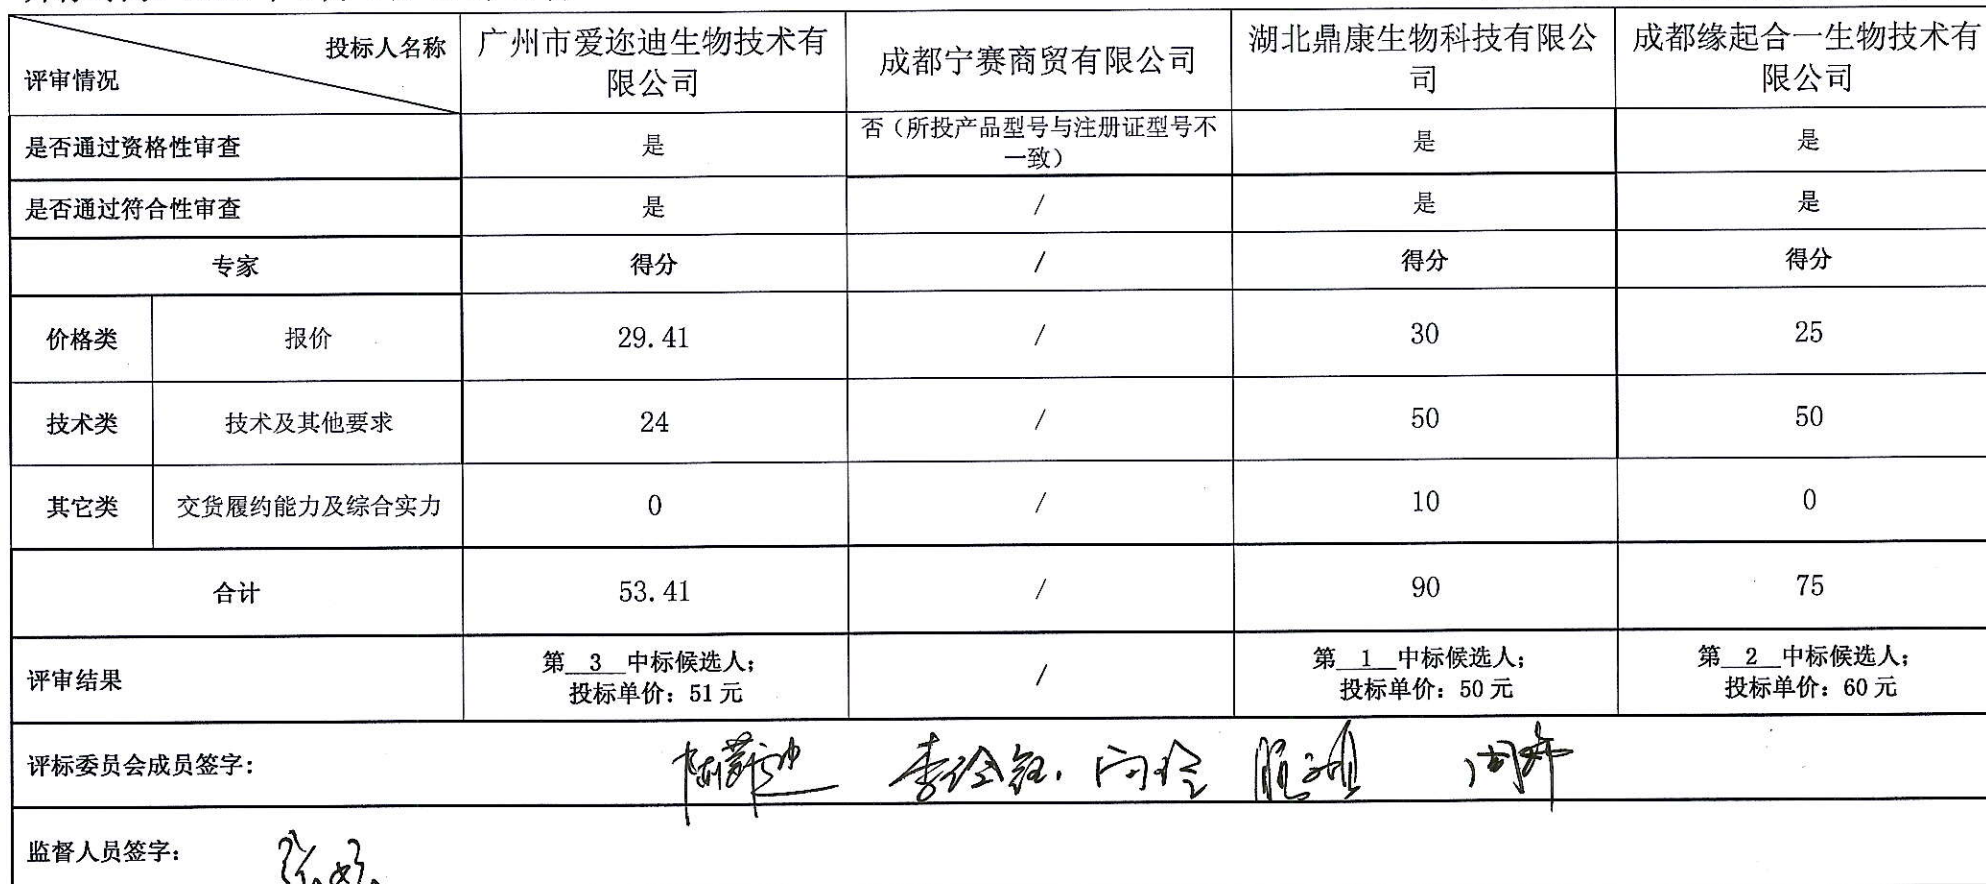 投标人名称
评审情况
广州市爱迩迪生物技术有
限公司
成都宁赛商贸有限公司
湖北鼎康生物科技有限公
司
成都缘起合一生物技术有
限公司
是否通过资格性审查
是
否（所投产品型号与注册证型号不
一致）
是
是
是否通过符合性审查
是
/
是
是
专家
得分
/
得分
得分
价格类
报价
29.41
/
30
25
技术类
技术及其他要求
24
/
50
50
其它类
交货履约能力及综合实力
0
/
10
0
合计
53.41
/
90
75
评审结果
第 3 中标候选人；
投标单价：51元
/
第 1 中标候选人；
投标单价：50元
第 2 中标候选人；
投标单价：60元
评标委员会成员签字：
监督人员签字：